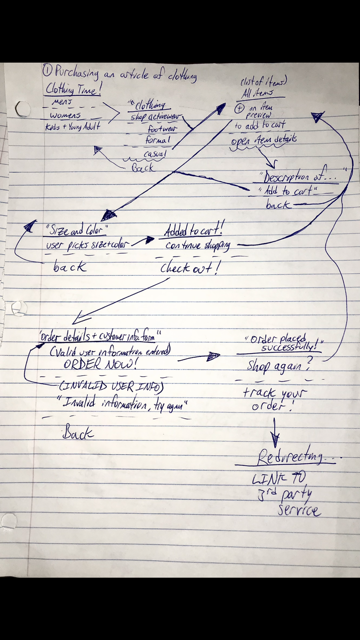 ① Purchasing an article of clothing
Clothing Time!
mens
womens
Kids + Young Adult
"Clothing
shop activewear
footwear
formal
casual
Back
(list of items)
All items
+ on item
preview
to add to cart
open item details
"Description of..."
"Add to cart"
back
"Size and Color"
user picks size+color
back
Added to cart!
continue shopping
Check out!
"order details + customer info form"
(Valid user information entered)
ORDER NOW!
(INVALID USER INFO)
"Invalid information, try again"
Back
"Order placed
successfully!"
Shop again?
track your
order?
Redirecting...
LINK TO
3rd party
service